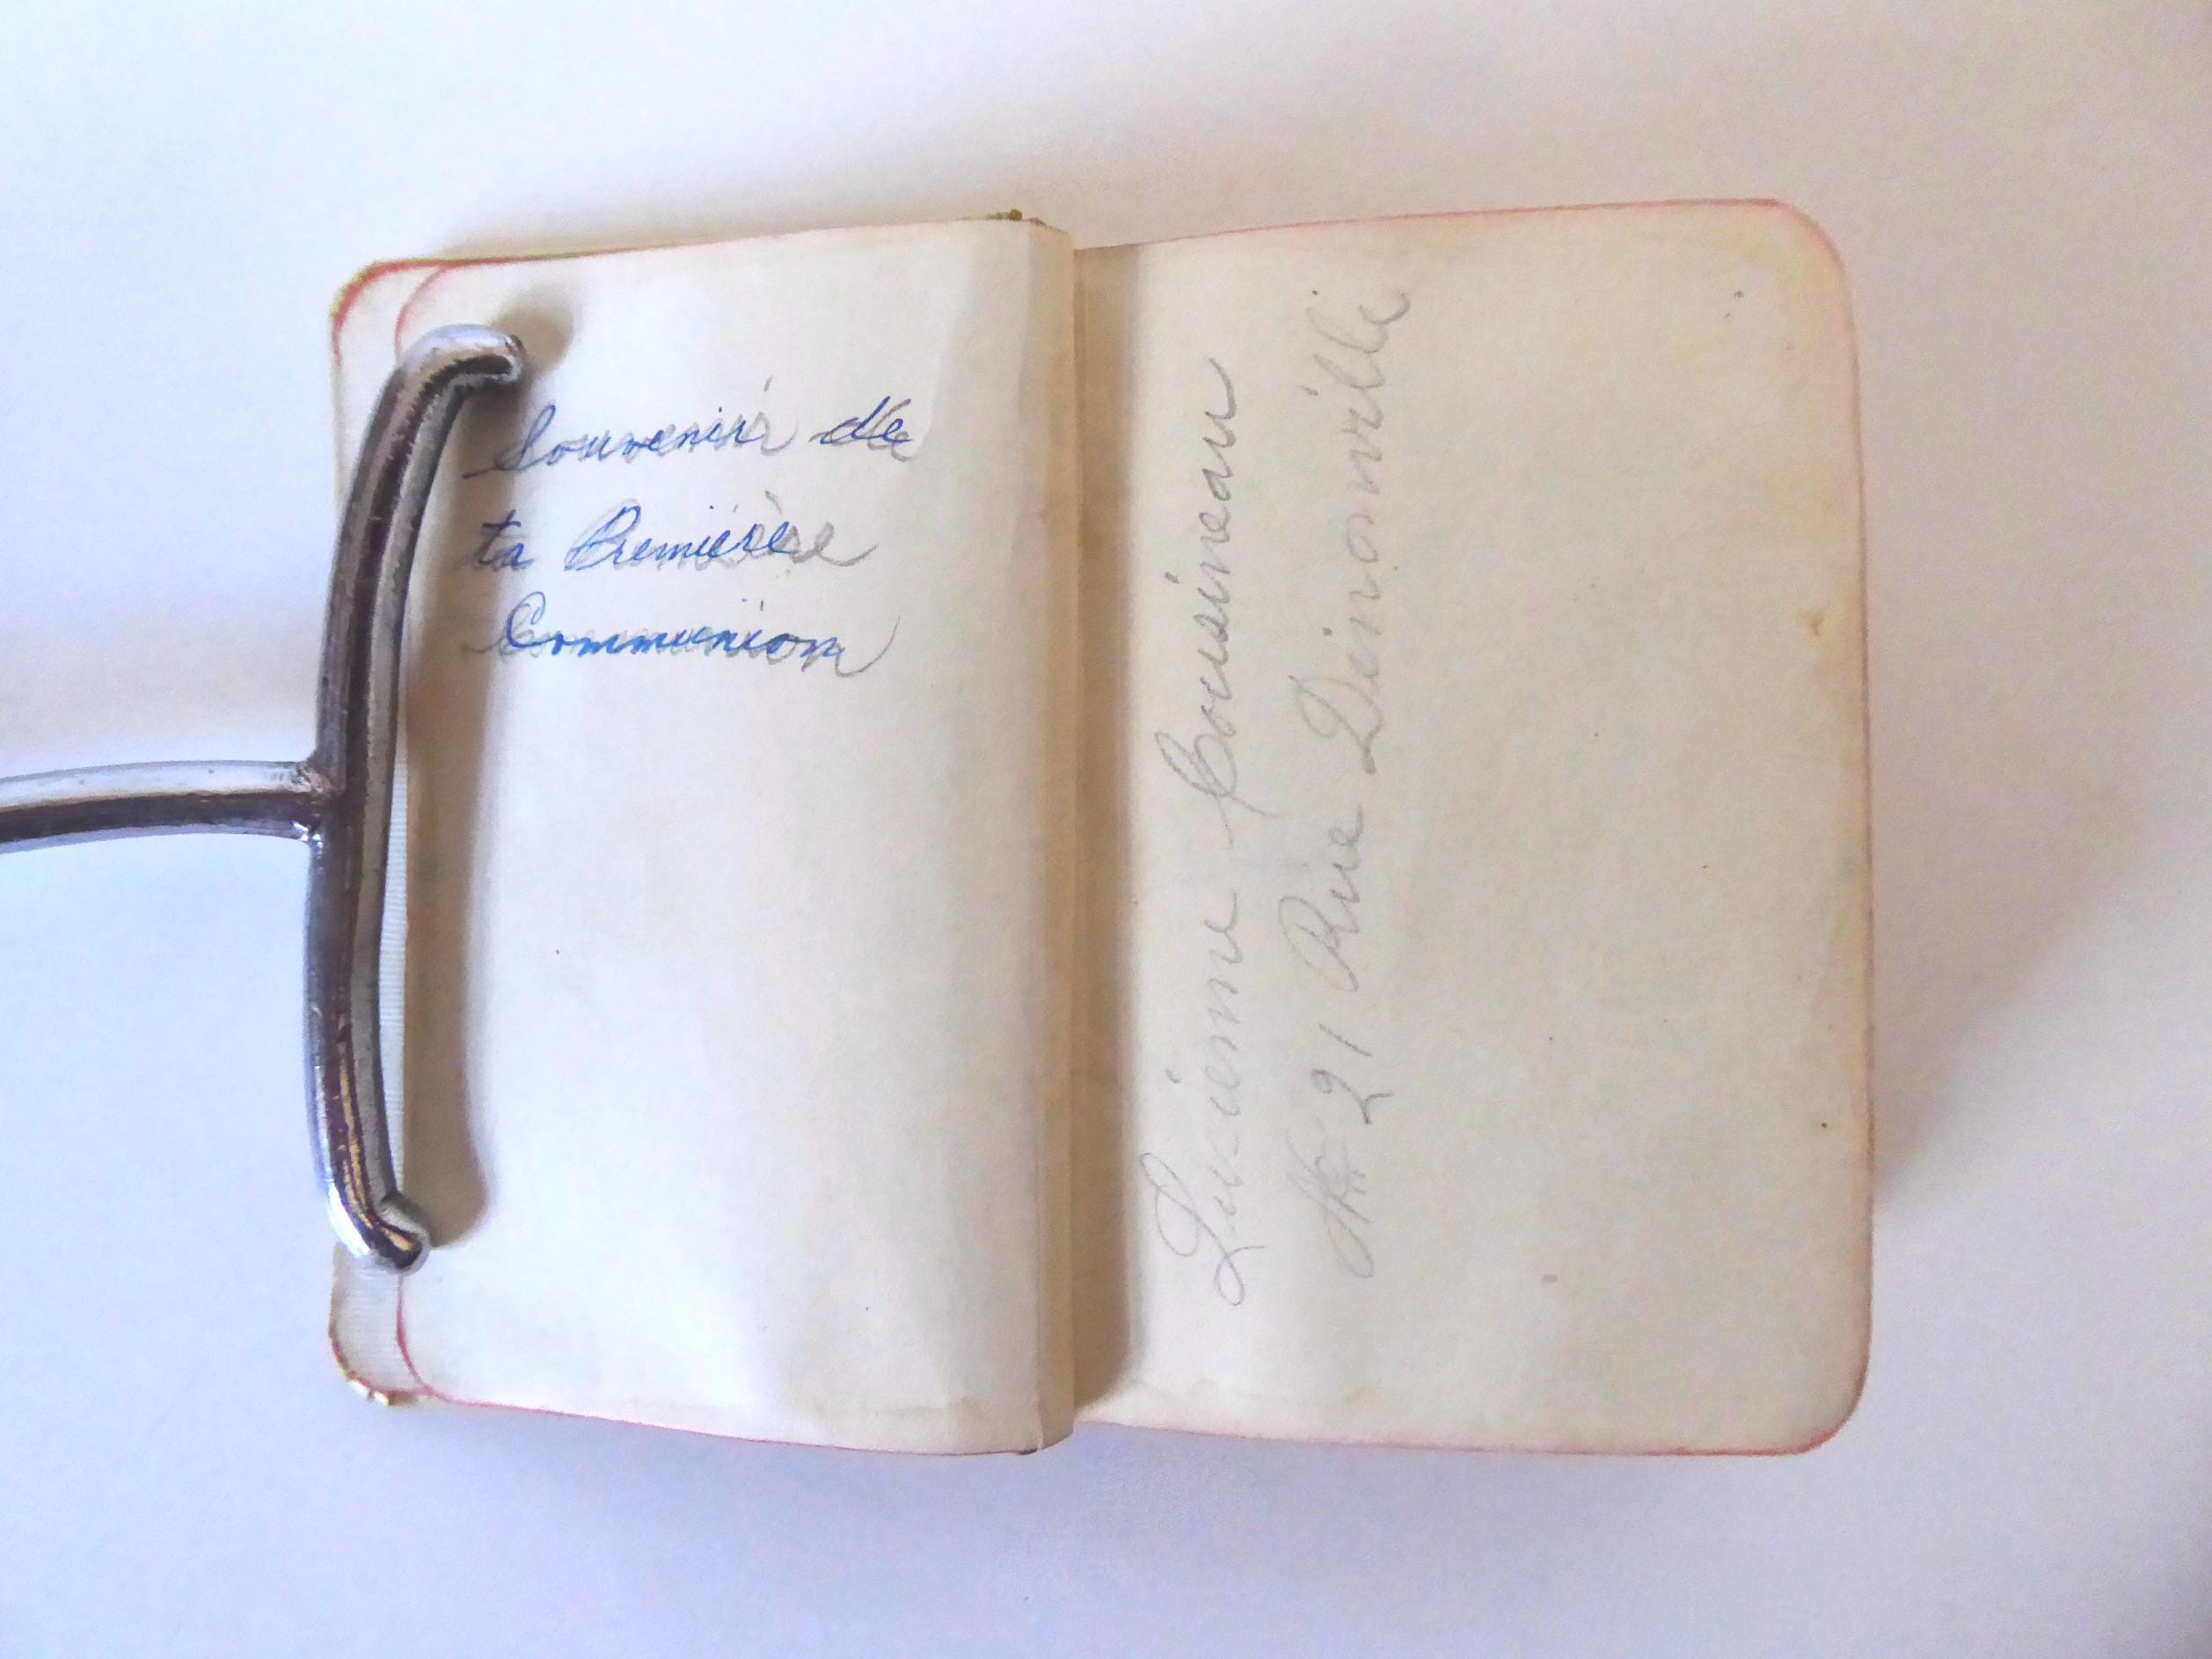 Souvenir de
ta Première
Communion
Lucienne Cousineau
No 21 Rue Dénonville